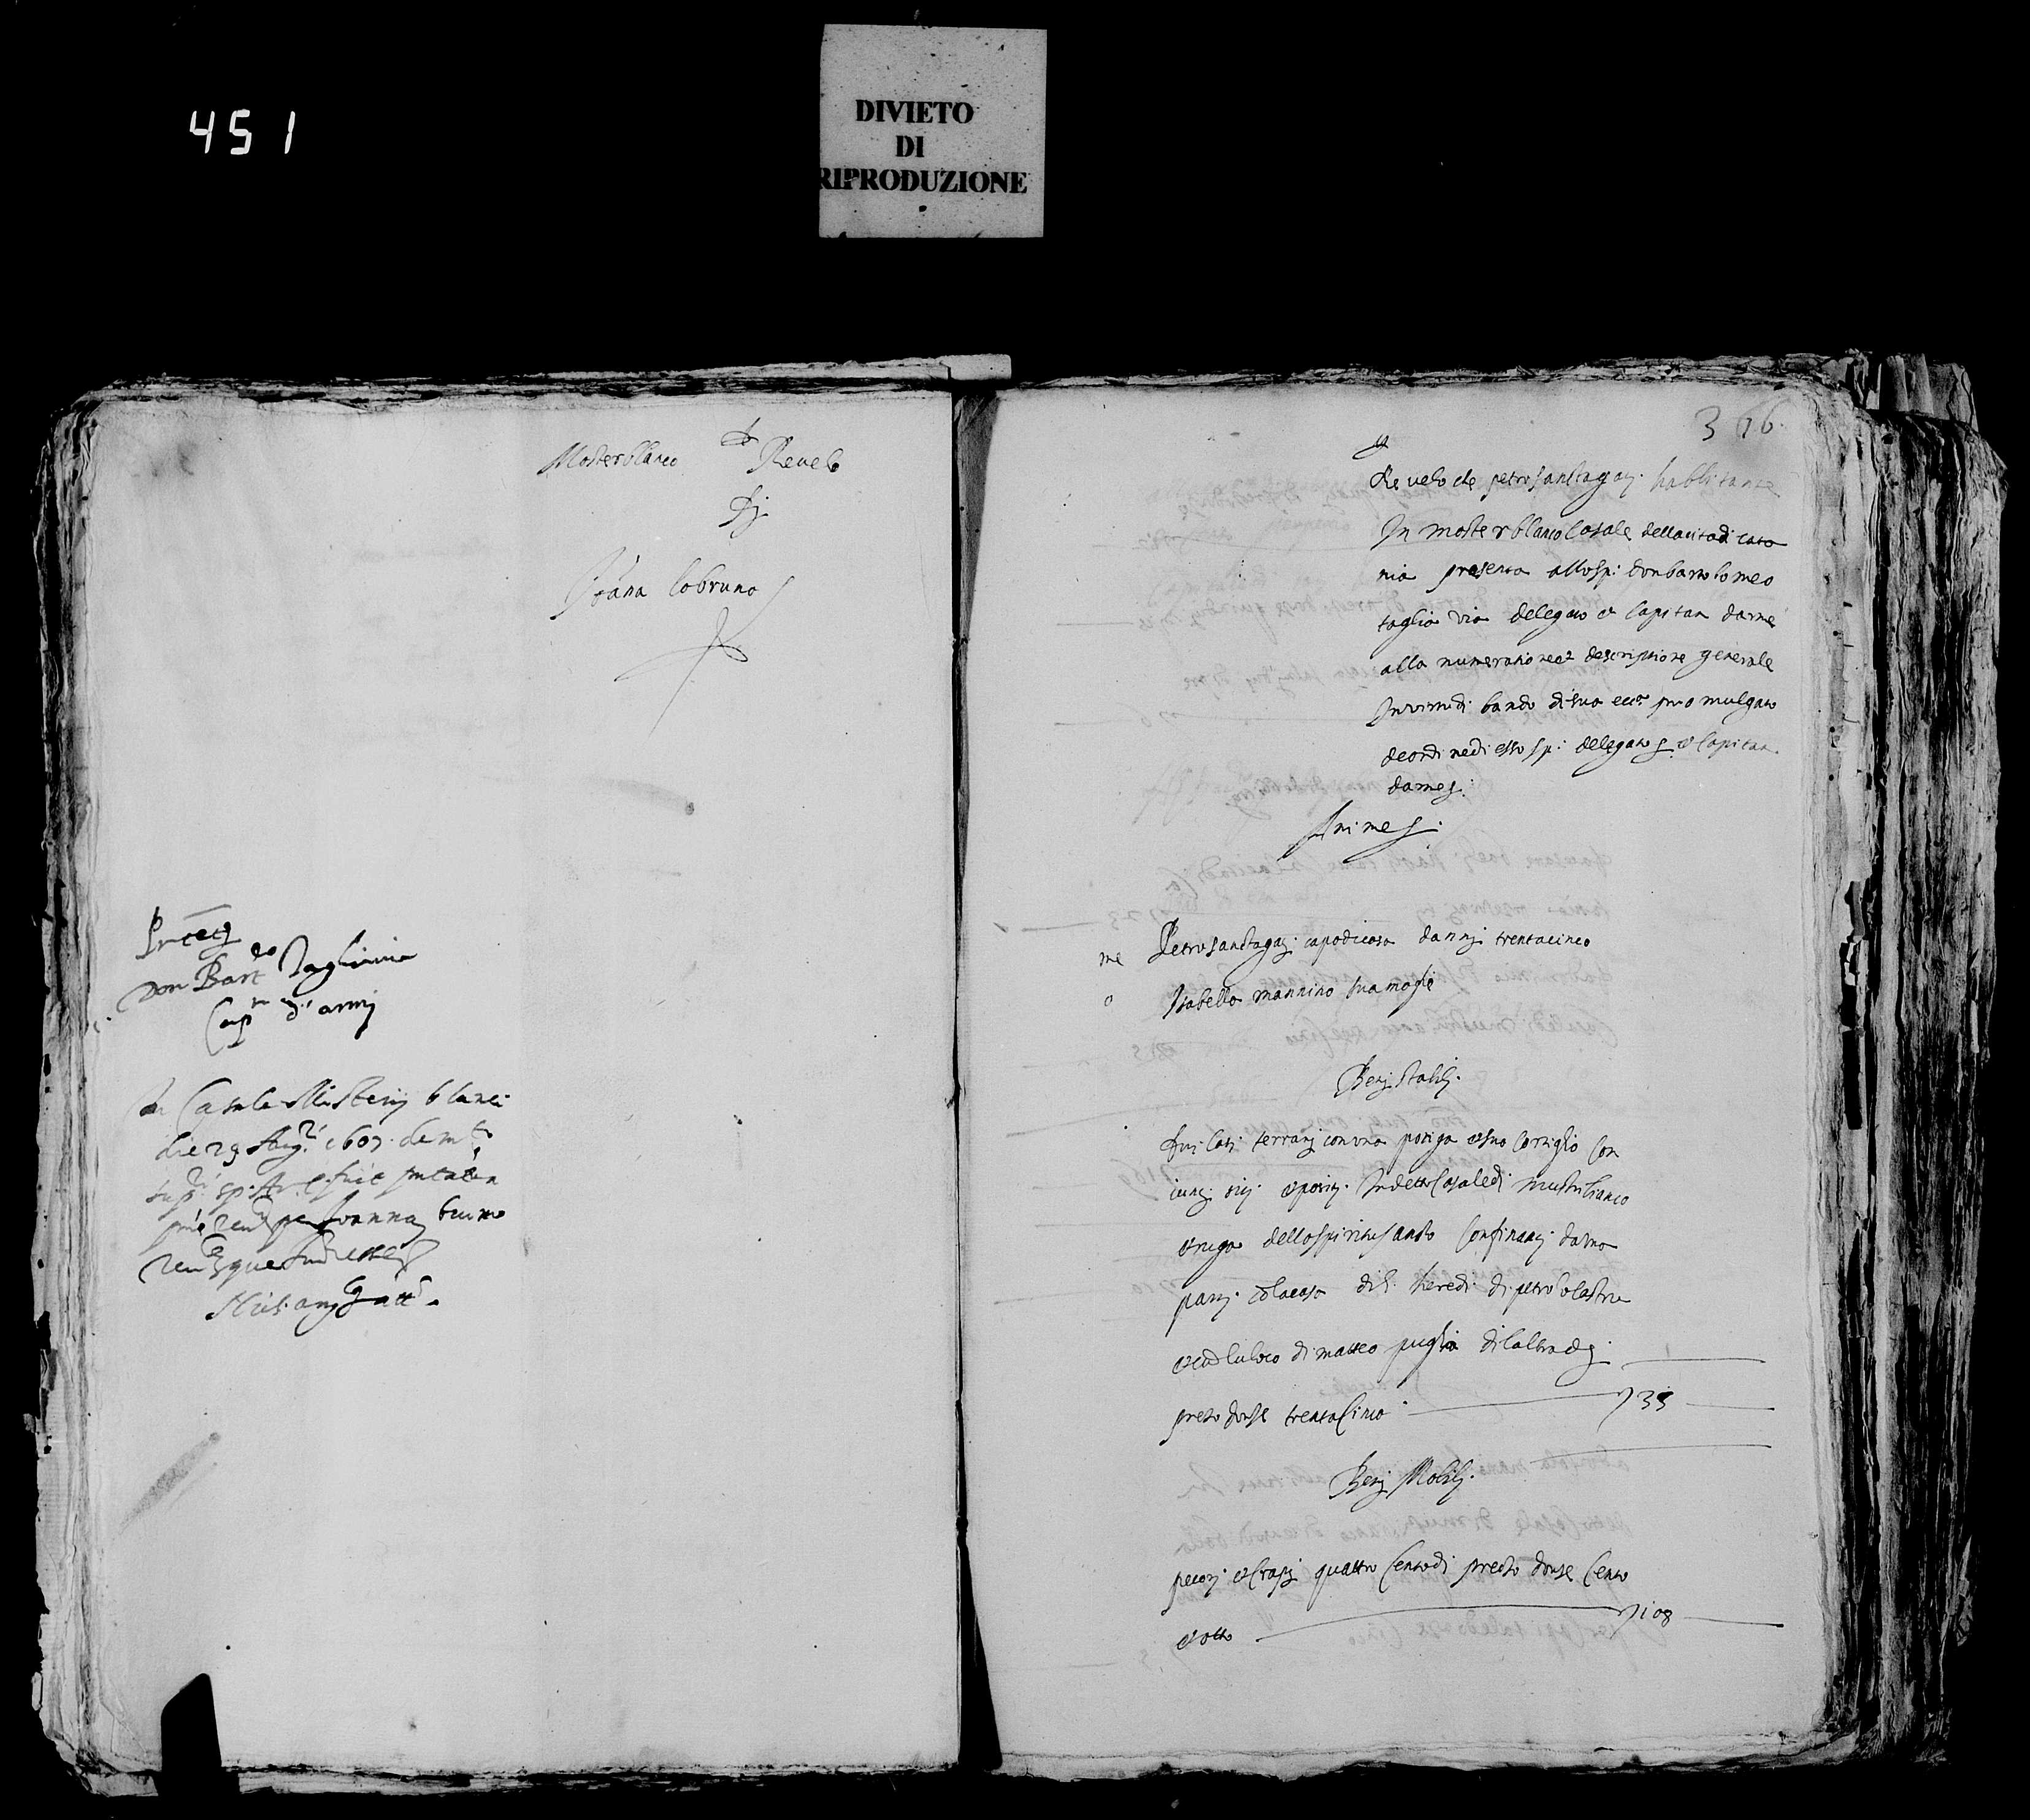 451
DIVIETO
DI
RIPRODUZIONE
Mosterblanco Revelo
Di
Joana lobruno
don Bar.do Taglavia
Cap.n d'armi
In Casale Misterij blanci
die 29 Aug.ti 1607
Joanna bruno
366.
Revelo de petro santagati habbitante
In mosterblanco Casale della cita di cata
nia presenta allo sp: don bartolomeo
taglia via delegato et Capitan darme
alla numeratione et descriptione generale
In virtu di bando di sua ecc.a promulgato
de ordine di esso sp: delegato et Capitan
darme
Anime
me Petro santagati capo di casa danni trentacinco
o Isabella mannino sua mogle
Beni stabili
Dui Casi terrani con una potiga et suo Cortiglio Con
iunti siti et positi In detto Casale di Mustribianco
dello spiritu santo Confinanti da una
parti co la casa di li heredi di petro
et co lu loco di matteo puglia di laltra di
preso donse trentacinco 35
Beni Mobili
pecori et Crapi quattro Cento di preso donse Cento
et otto 108